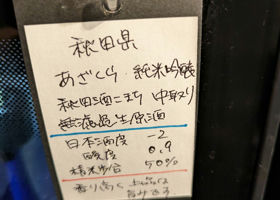 秋田県
あざくら 純米吟醸
秋田酒こまち 中取り
無濾過生原酒
日本酒度 -2
酸度 0.9
精米歩合 50%
香り高く 上品な
旨みです